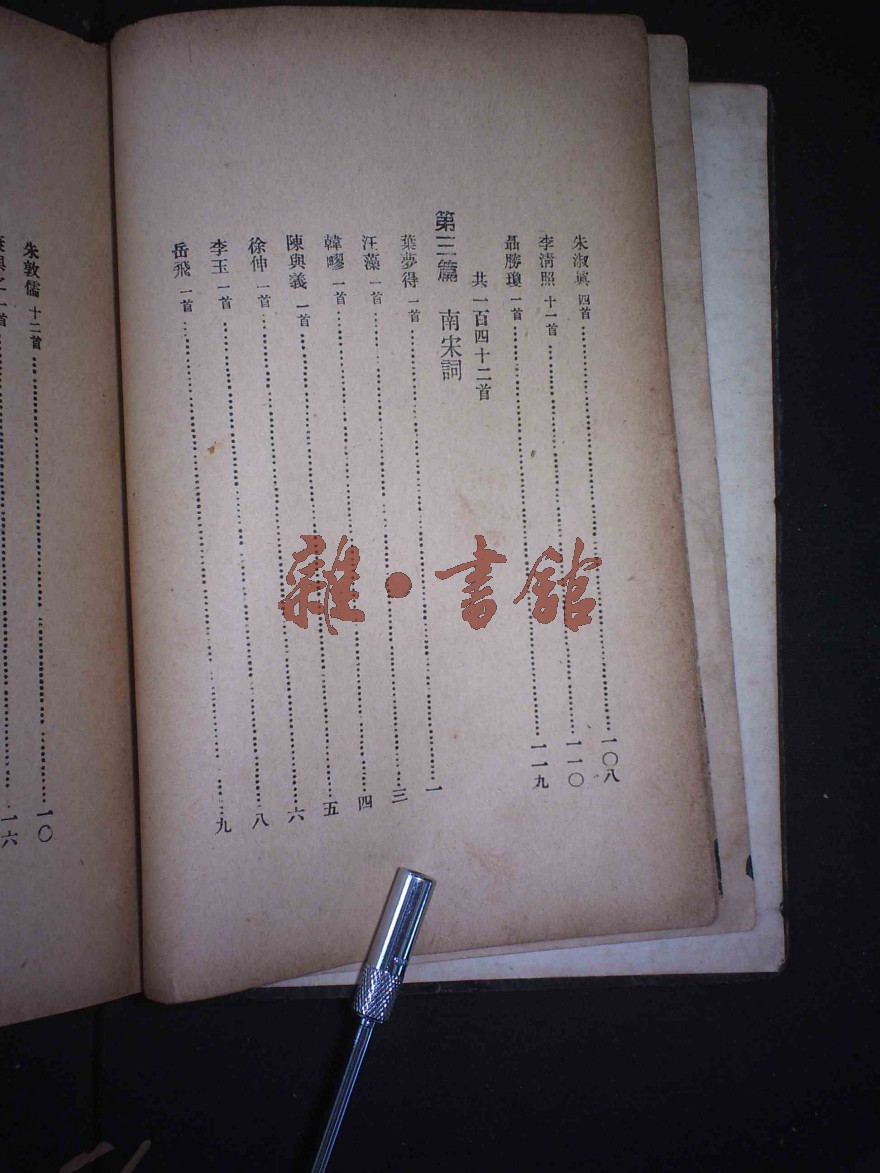 朱淑眞 四首………一〇八
李淸照 十一首………一一〇
聶勝瓊 一首………一一九
共一百四十二首
第三篇 南宋詞
葉夢得 一首………一
汪藻 一首………三
韓疁 一首………四
陳與義 一首………五
徐仲 一首………六
李玉 一首………八
岳飛 一首………九
朱敦儒 十二首………一〇
與之 一首………一六
雜·書館